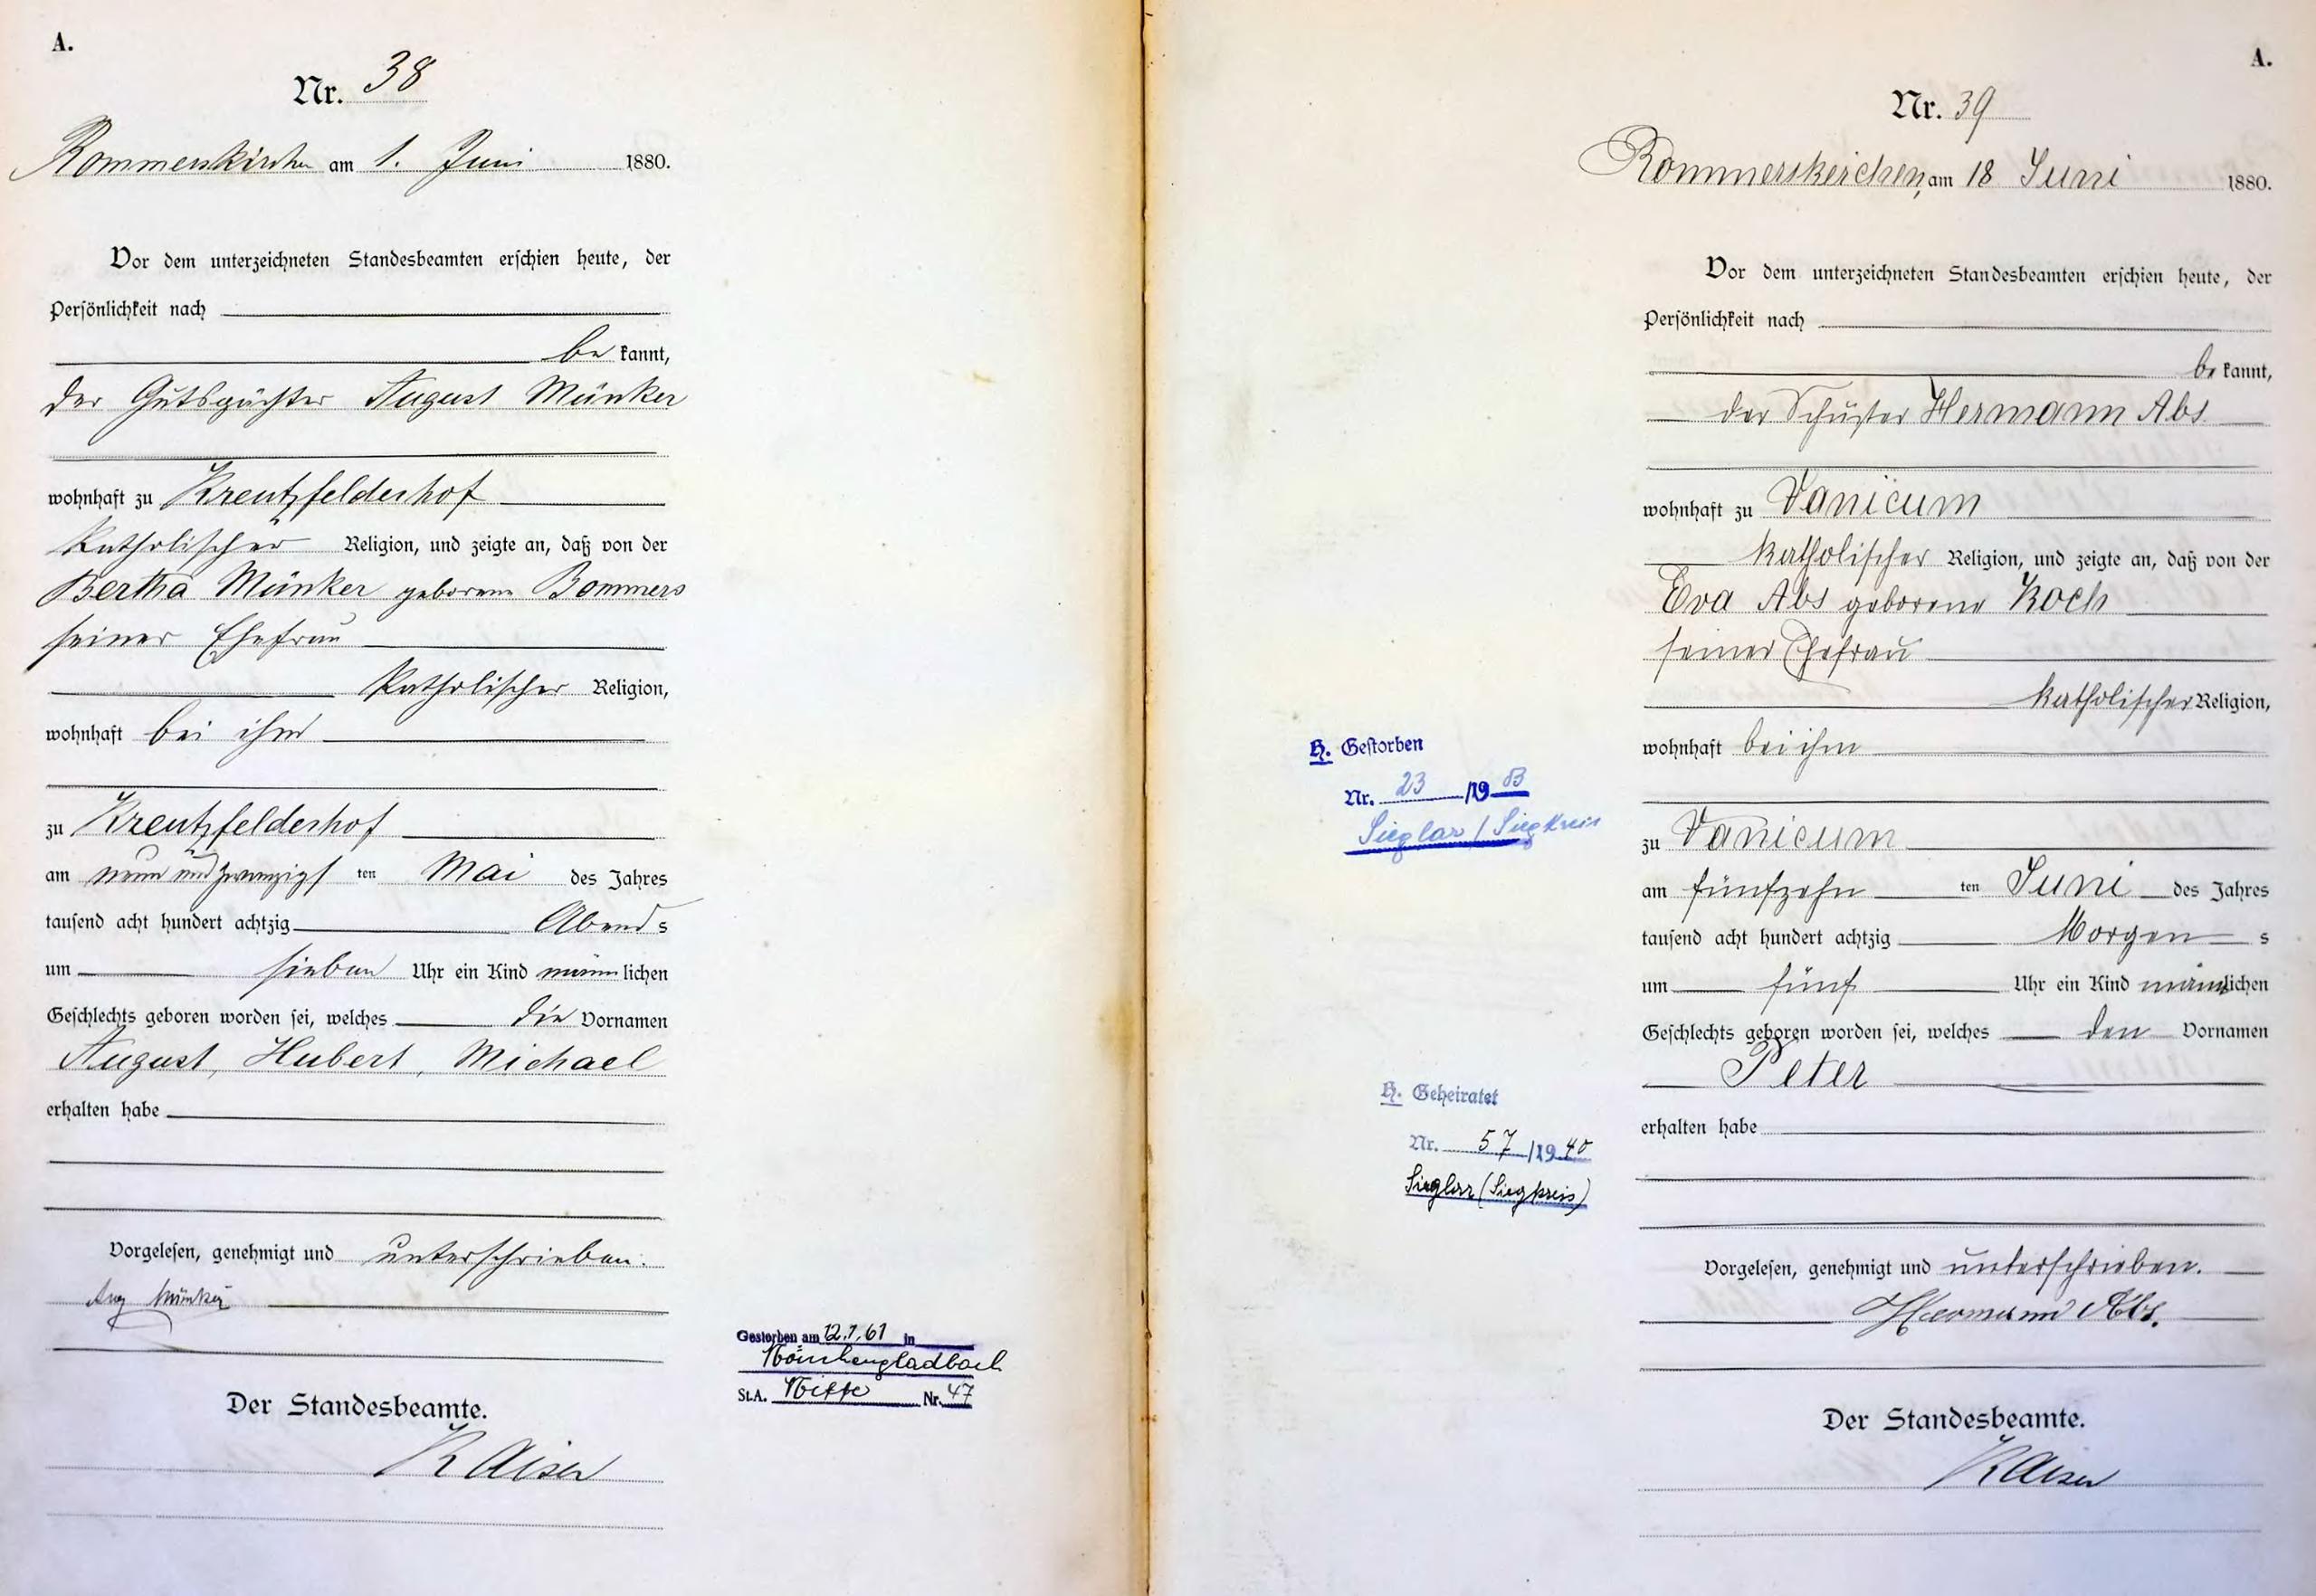 A.
Nr. 38
Rommerskirchen am 1. Juni 1880.
Vor dem unterzeichneten Standesbeamten erschien heute, der
Persönlichkeit nach
be kannt,
der Gutspächter August Münker
wohnhaft zu Kreutzfelderhof
katholischer Religion, und zeigte an, daß von der
Bertha Münker geborene Bommers
seiner Ehefrau
katholischer Religion,
wohnhaft bei ihm
zu Kreutzfelderhof
am neun und zwanzigs ten Mai des Jahres
tausend acht hundert achtzig Abend s
um sieben Uhr ein Kind männ lichen
Geschlechts geboren worden sei, welches die Vornamen
August, Hubert, Michael
erhalten habe
Vorgelesen, genehmigt und unterschrieben.
Aug Münker
Der Standesbeamte.
Kaiser
Gestorben am 12.1.61 in
Mönchengladbach
St.A. Mitte Nr. 47
A.
Nr. 39
Rommerskirchen, am 18 Juni 1880.
Vor dem unterzeichneten Standesbeamten erschien heute, der
Persönlichkeit nach
be kannt,
der Schuster Hermann Abs
wohnhaft zu Vanicum
katholischer Religion, und zeigte an, daß von der
Eva Abs geborene Koch
seiner Ehefrau
katholischer Religion,
wohnhaft bei ihm
zu Vanicum
am fünfzehn ten Juni des Jahres
tausend acht hundert achtzig Morgen s
um fünf Uhr ein Kind männlichen
Geschlechts geboren worden sei, welches den Vornamen
Peter
erhalten habe
Vorgelesen, genehmigt und unterschrieben.
Hermann Abs.
Der Standesbeamte.
Kaiser
H. Gestorben
Nr. 23 /19 53
Sieglar / Siegkreis
H. Geheiratet
Nr. 57 /19 40
Sieglar (Siegkreis)